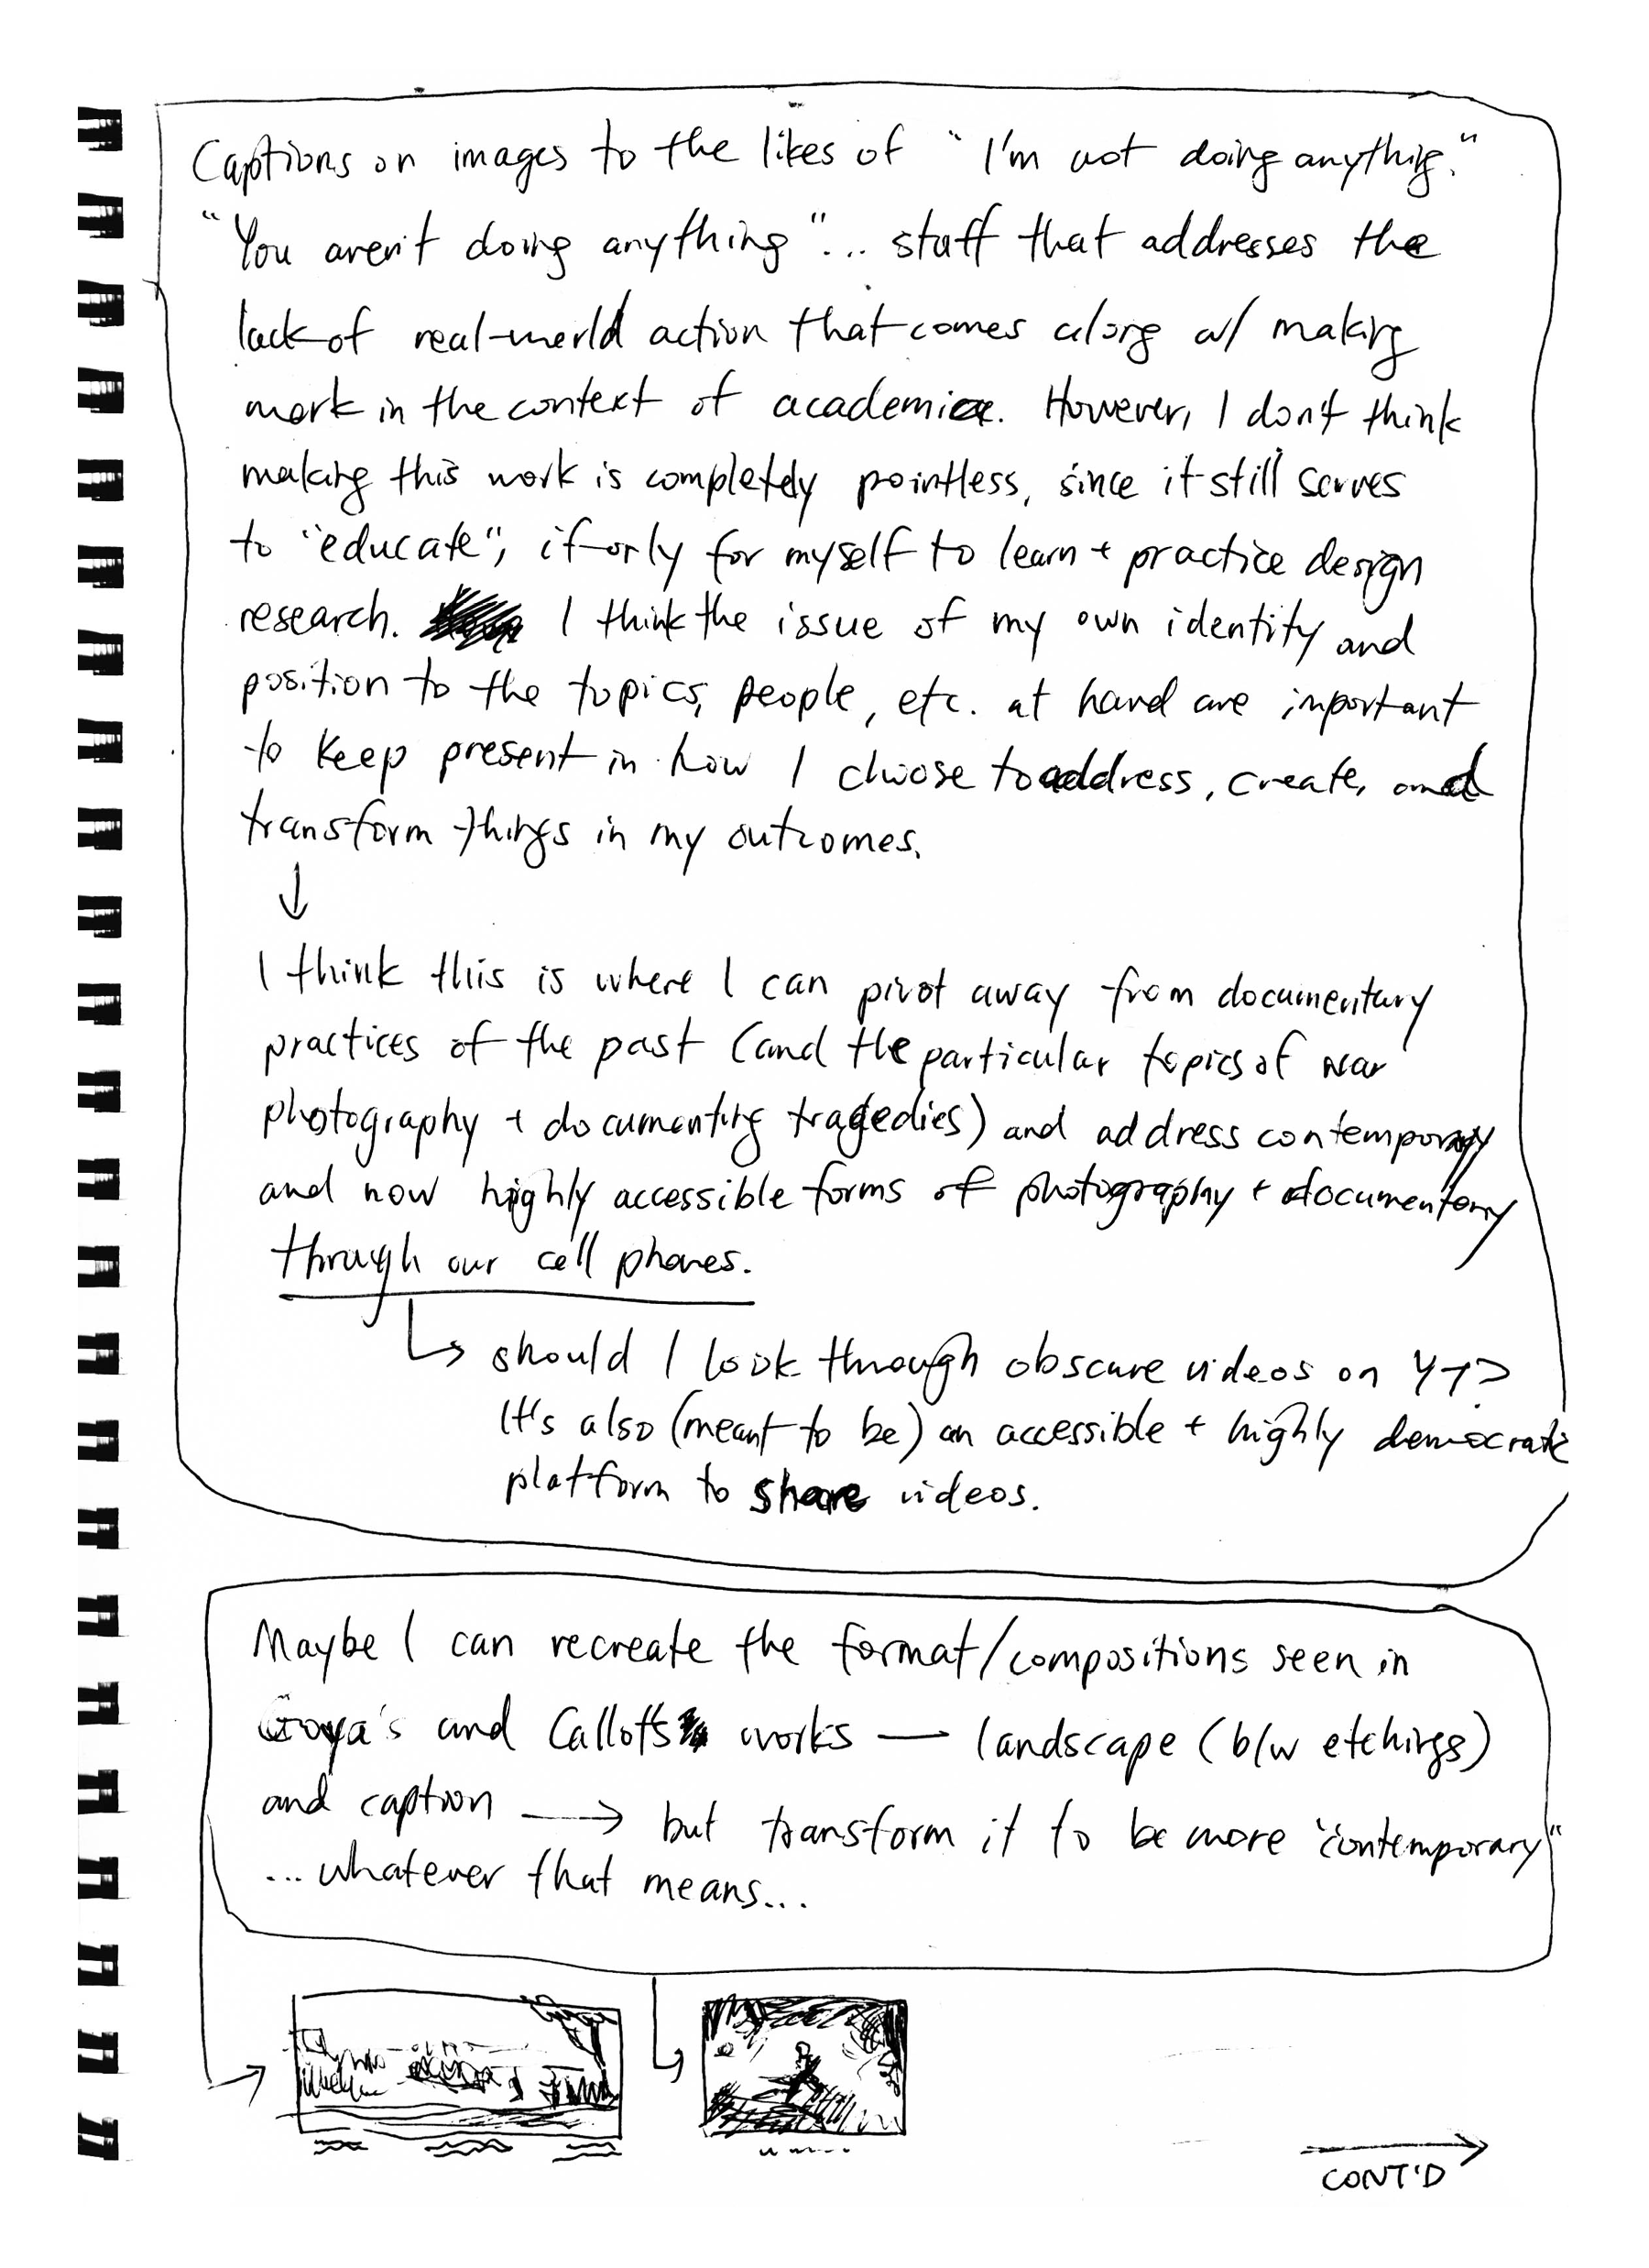 Captions on images to the likes of "I'm not doing anything."
"You aren't doing anything"... stuff that addresses the
lack of real-world action that comes along w/ making
work in the context of academia. However, I don't think
making this work is completely pointless, since it still serves
to "educate", if only for myself to learn + practice design
research. I think the issue of my own identity and
position to the topics, people, etc. at hand are important
to keep present in how I choose to address, create, and
transform things in my outcomes.
↓
I think this is where I can pivot away from documentary
practices of the past (and the particular topics of war
photography + documenting tragedies) and address contemporary
and now highly accessible forms of photography + documentary
through our cell phones.
↳ should I look through obscure videos on YT?
It's also (meant to be) an accessible + highly democratic
platform to share videos.
Maybe I can recreate the format/compositions seen in
Goya's and Callot's works — landscape (b/w etchings)
and caption → but transform it to be more "contemporary"
...whatever that means...
CONT'D